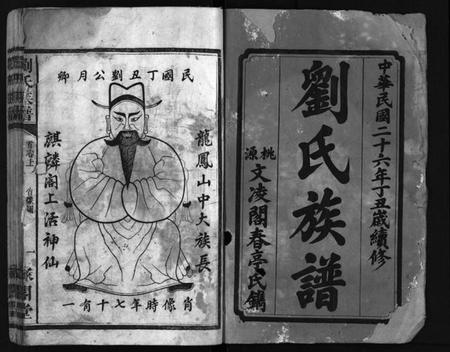 中華民國二十六年丁丑歲續修
劉氏族譜
桃源
文凌閣春亭氏鐫
民國丁丑劉公月鄉
龍鳳山中大族長
麒麟閣上活神仙
肖像時年七十有一
劉氏族譜